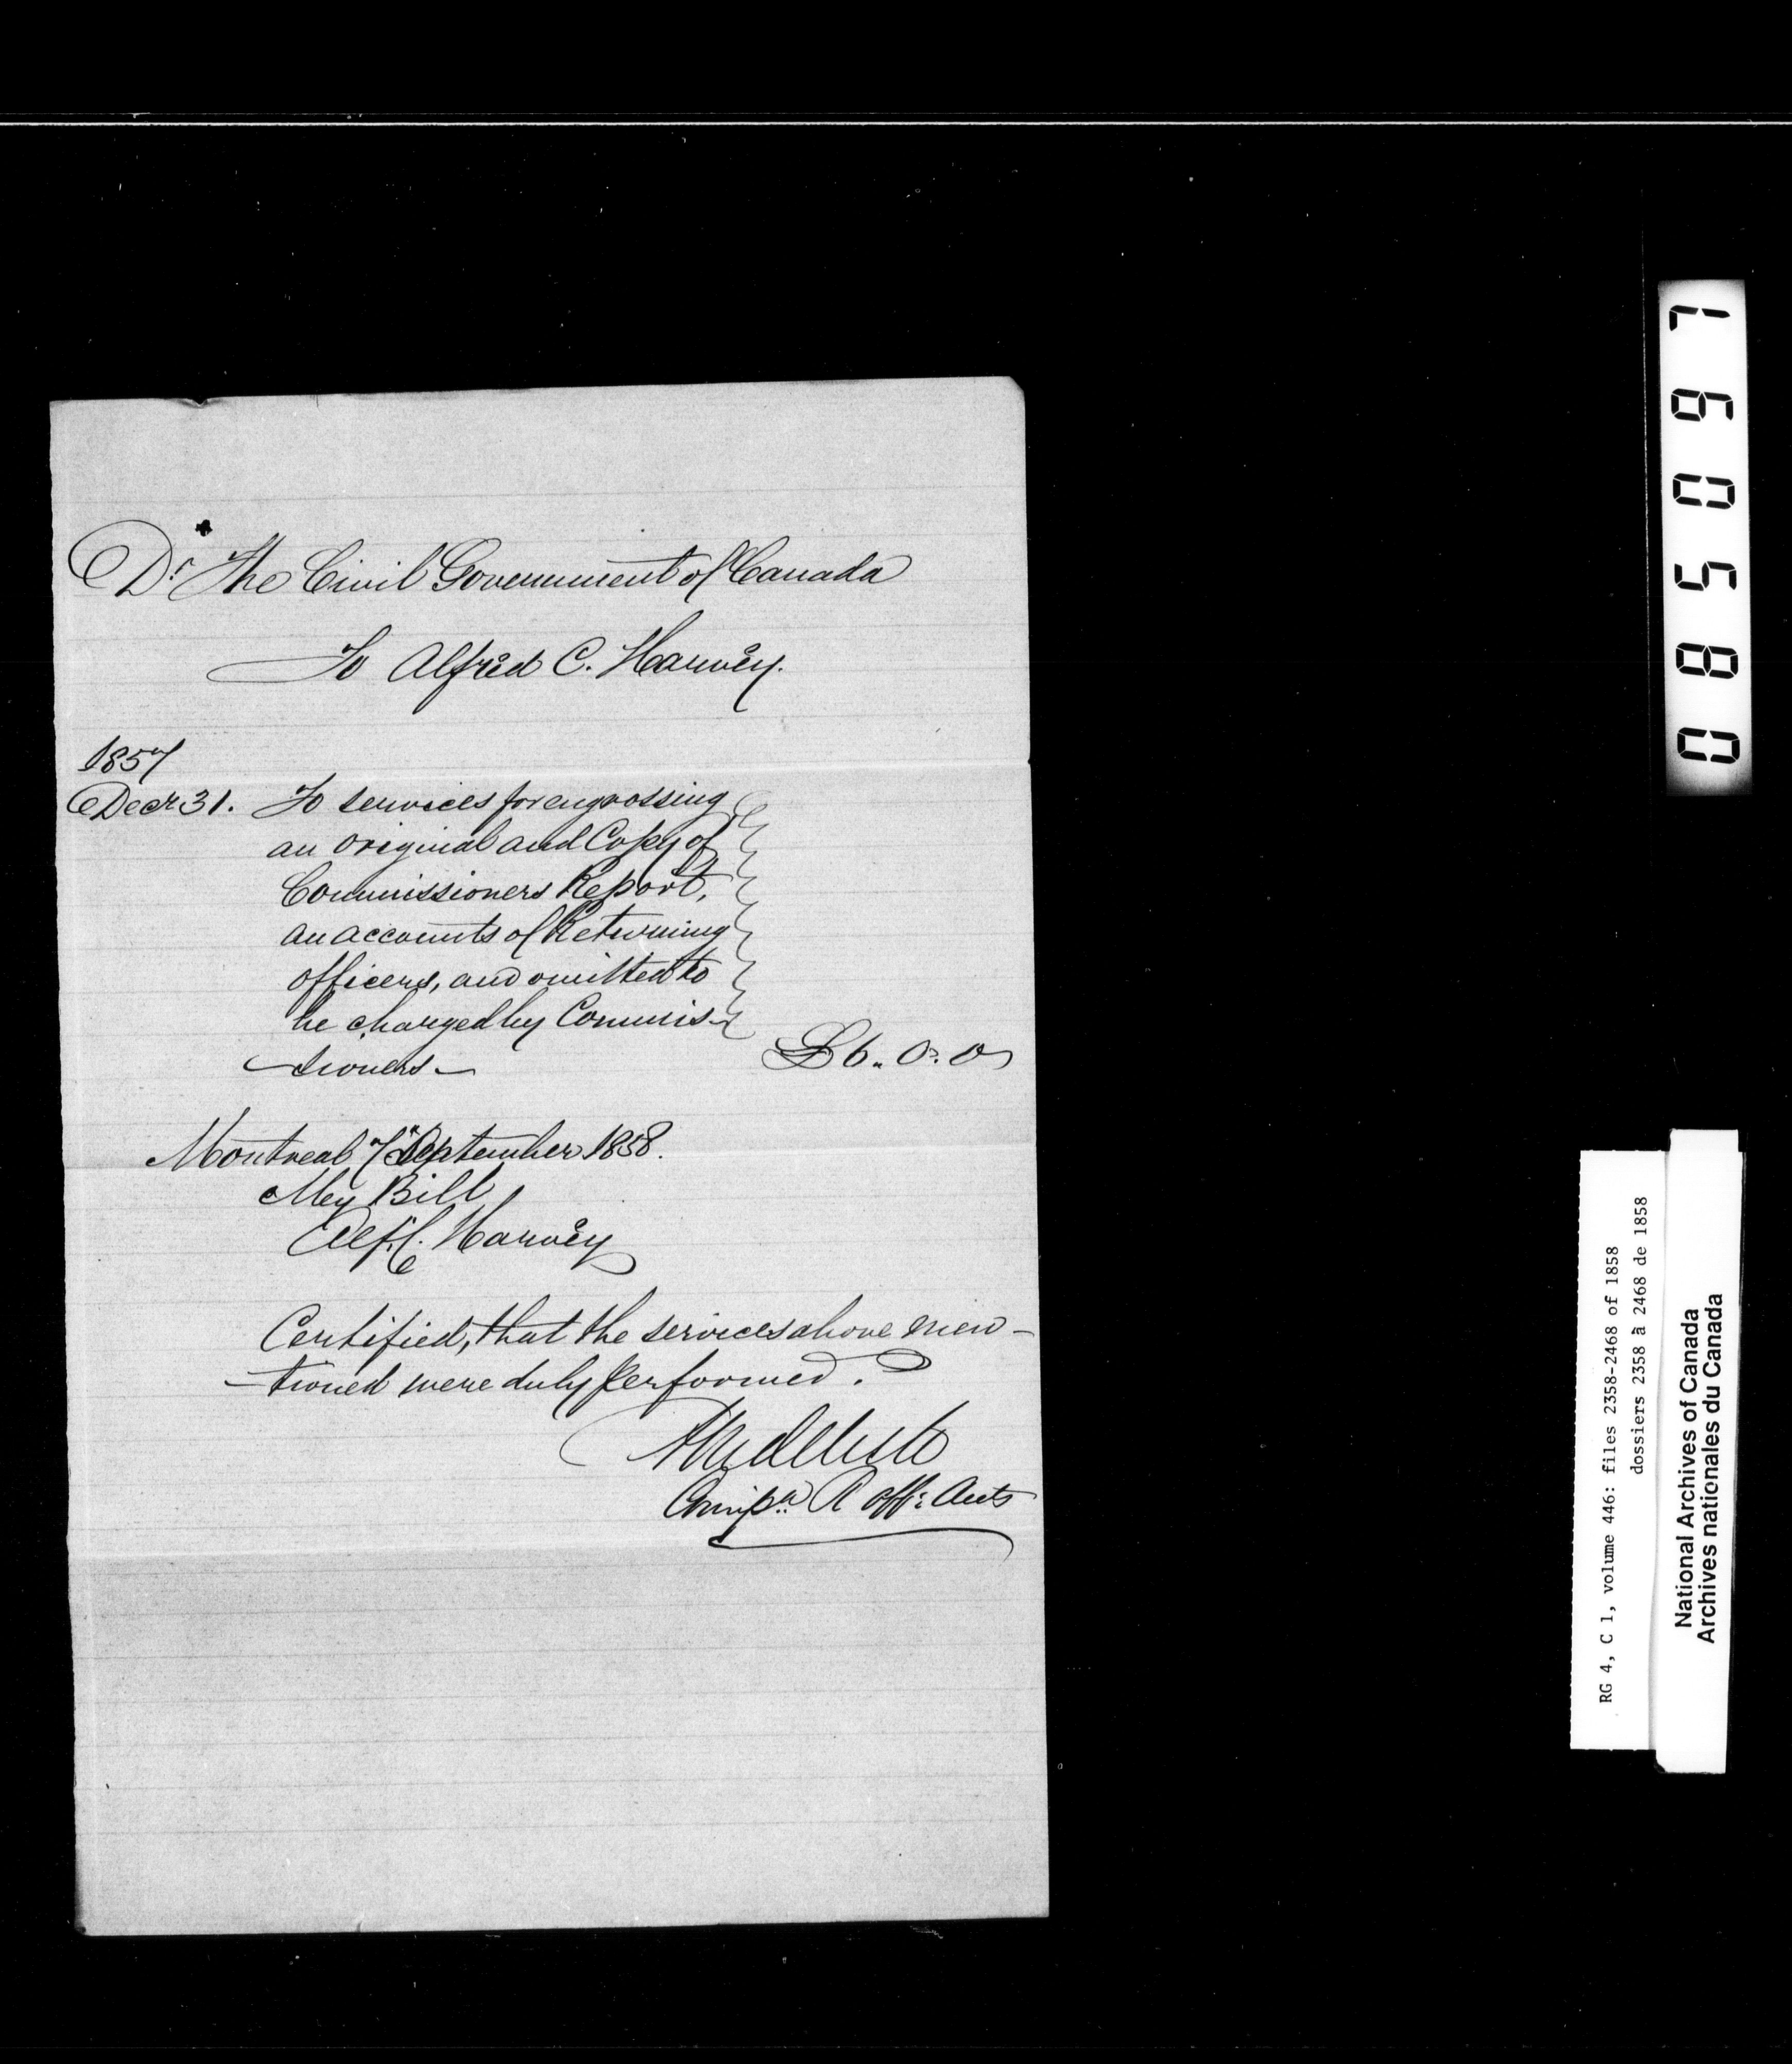 Dr The Civil Government of Canada
To Alfred C. Harvey.
1857
Decr 31. To services for engrossing
an original and Copy of
Commissioners Report,
an accounts of Returning
officers, and omitted to
be charged by Commis-
-sioners-
£6. 0. 0
Montreal 7 September 1858.
My Bill
Alf. C. Harvey
Certified, that the services above men-
-tioned were duly performed.
R offr. Acts
085097
RG 4, C 1, volume 446: files 2358-2468 of 1858
dossiers 2358 à 2468 de 1858
National Archives of Canada
Archives nationales du Canada